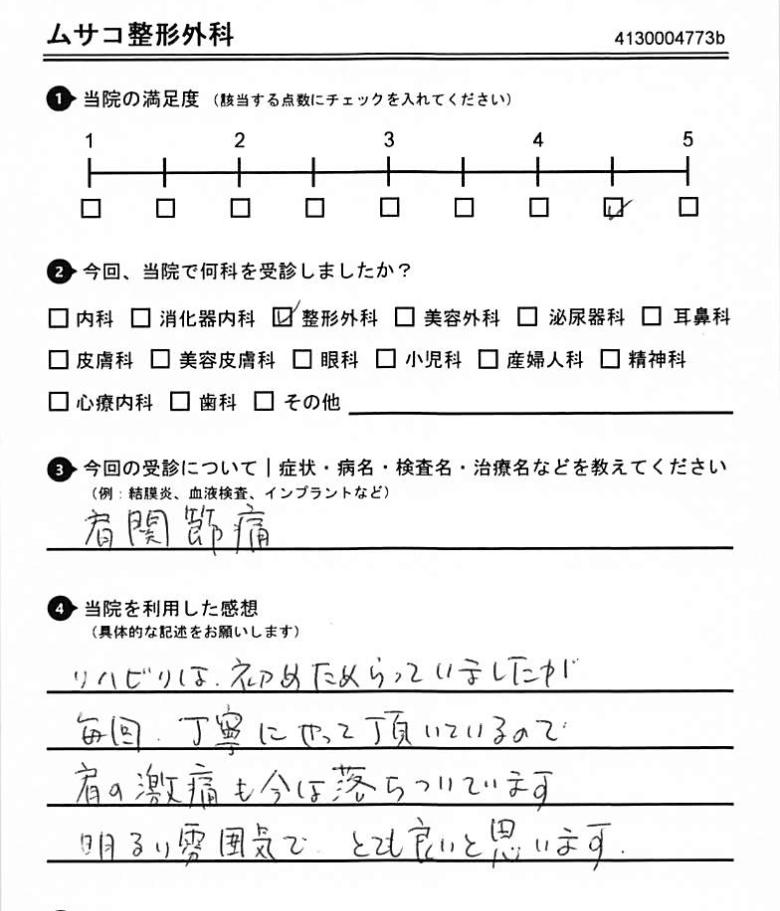 ムサコ整形外科
4130004773b
1 当院の満足度（該当する点数にチェックを入れてください）
1 2 3 4 5
2 今回、当院で何科を受診しましたか？
内科 消化器内科 整形外科 美容外科 泌尿器科 耳鼻科
皮膚科 美容皮膚科 眼科 小児科 産婦人科 精神科
心療内科 歯科 その他
3 今回の受診について｜症状・病名・検査名・治療名などを教えてください
（例：結膜炎、血液検査、インプラントなど）
肩関節痛
4 当院を利用した感想
（具体的な記述をお願いします）
リハビリは、初めためらっていましたが
毎回、丁寧にやって頂いているので
肩の激痛も今は落ちついています
明るい雰囲気で とても良いと思います.